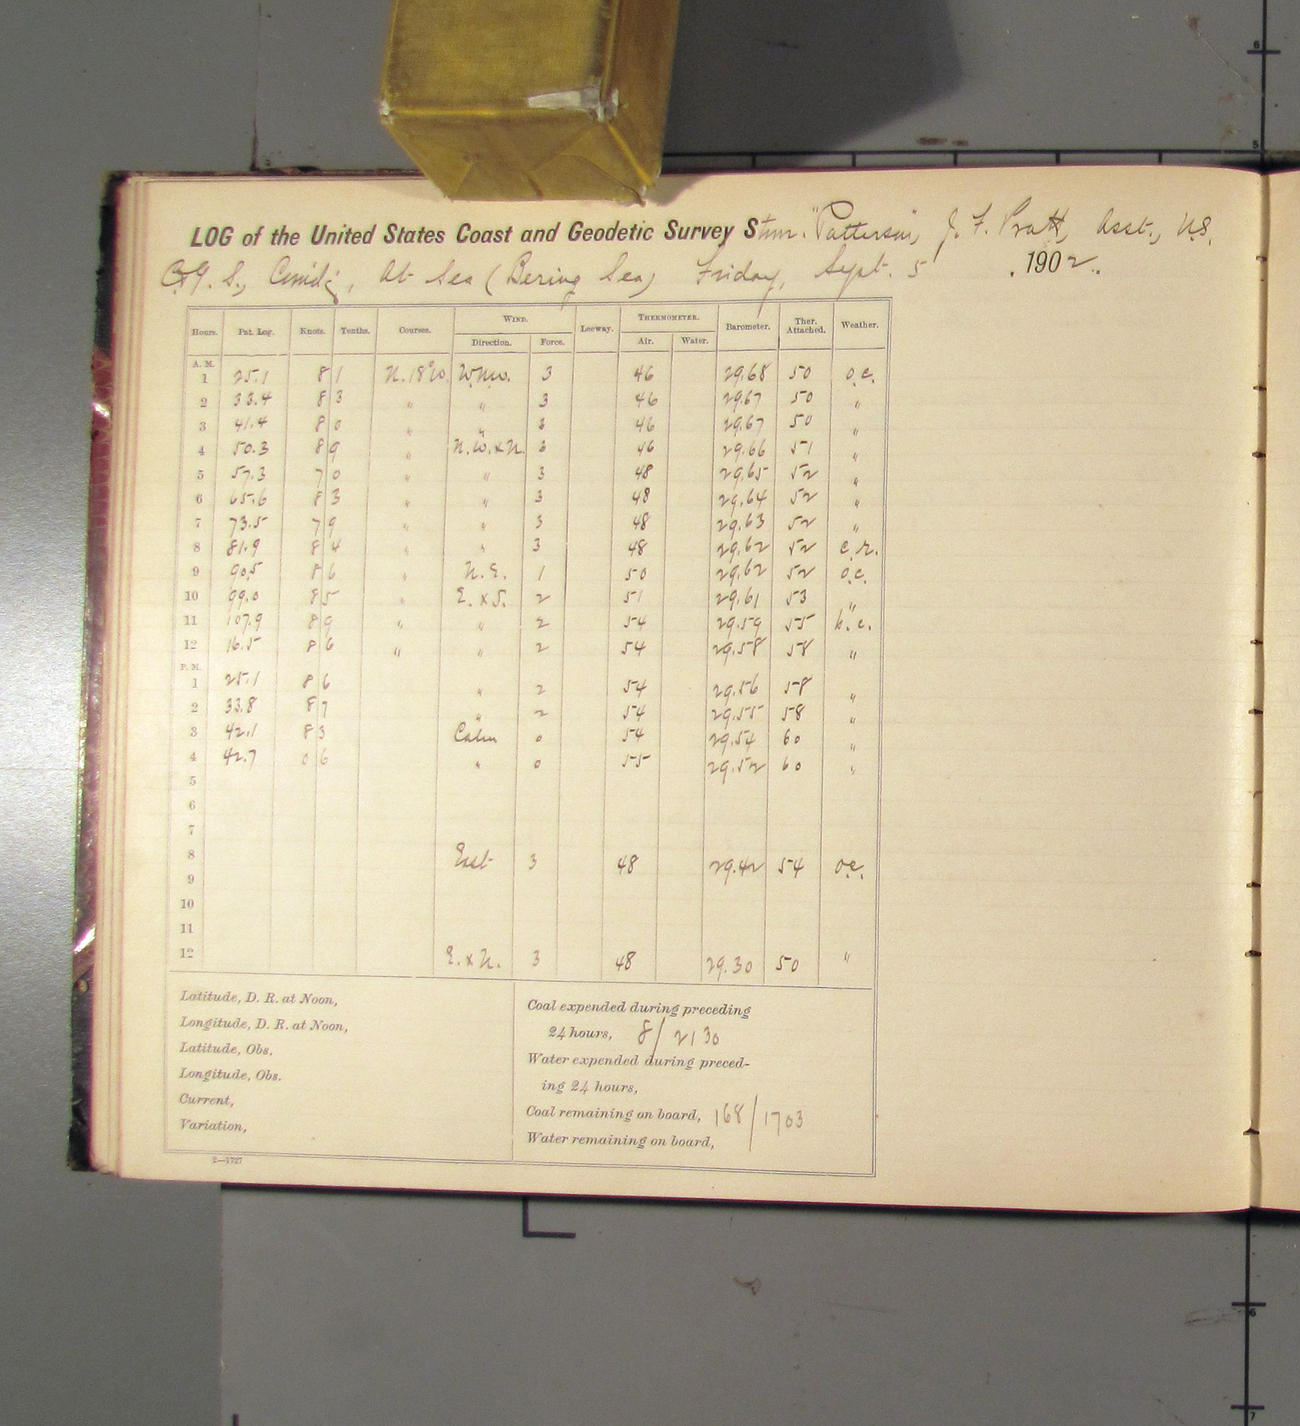 LOG of the United States Coast and Geodetic Survey Stmr. "Patterson", J. F. Pratt, Asst., U.S.
C.&G. S., Cmd'g, At Sea (Bering Sea) Friday, Sept. 5, 1902.
Hours. Pat. Log. Knots. Tenths. Courses. WIND. Leeway. THERMOMETER. Barometer. Ther. Attached. Weather.
Direction. Force. Air. Water.
A. M.
1 25.1 8 1 N. 18° W. W.N.W. 3 46 29.68 50 o.c.
2 33.4 8 3 " " 3 46 29.67 50 "
3 41.4 8 0 " " 3 46 29.67 50 "
4 50.3 8 9 " N.W.xN. 3 46 29.66 51 "
5 57.3 7 0 " " 3 48 29.65 52 "
6 65.6 8 3 " " 3 48 29.64 52 "
7 73.5 7 9 " " 3 48 29.63 52 "
8 81.9 8 4 " " 3 48 29.62 52 c.r.
9 90.5 8 6 " N.E. 1 50 29.62 52 o.c.
10 99.0 8 5 " E.xS. 2 51 29.61 53 "
11 107.9 8 9 " " 2 54 29.59 55 b.c.
12 16.5 8 6 " " 2 54 29.58 58 "
P. M.
1 25.1 8 6 " 2 54 29.56 58 "
2 33.8 8 7 " 2 54 29.55 58 "
3 42.1 8 3 Calm 0 54 29.54 60 "
4 42.7 0 6 " 0 55 29.52 60 "
5
6
7
8 East 3 48 29.42 54 o.c.
9
10
11
12 E.xN. 3 48 29.30 50 "
Latitude, D. R. at Noon,
Longitude, D. R. at Noon,
Latitude, Obs.
Longitude, Obs.
Current,
Variation,
Coal expended during preceding
24 hours, 8/2130
Water expended during preced-
ing 24 hours,
Coal remaining on board, 168/1703
Water remaining on board,
2—1727
6
5
6
7